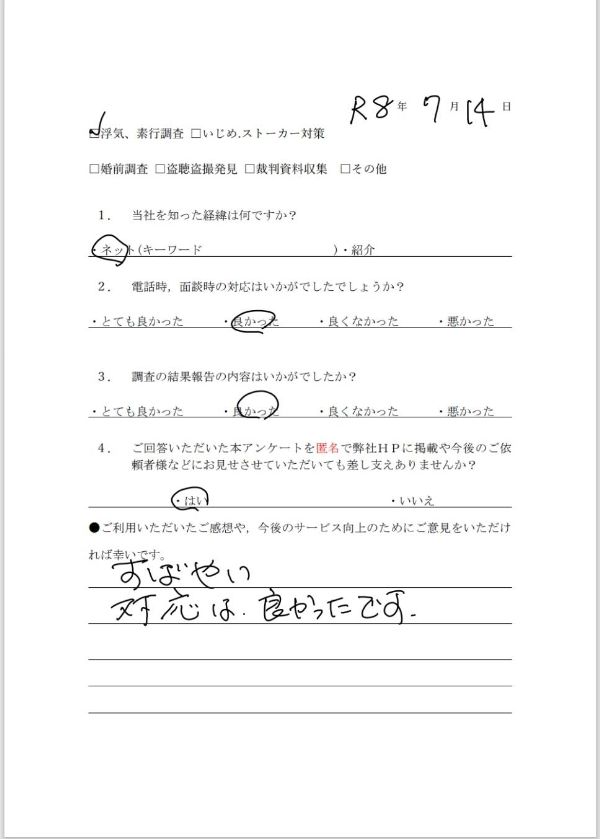 R8年 7月 14日
☑浮気、素行調査 □いじめ.ストーカー対策
□婚前調査 □盗聴盗撮発見 □裁判資料収集 □その他
1. 当社を知った経緯は何ですか？
・ネット(キーワード )・紹介
2. 電話時，面談時の対応はいかがでしたでしょうか？
・とても良かった ・良かった ・良くなかった ・悪かった
3. 調査の結果報告の内容はいかがでしたか？
・とても良かった ・良かった ・良くなかった ・悪かった
4. ご回答いただいた本アンケートを匿名で弊社ＨＰに掲載や今後のご依
頼者様などにお見せさせていただいても差し支えありませんか？
・はい ・いいえ
●ご利用いただいたご感想や，今後のサービス向上のためにご意見をいただけ
れば幸いです。
すばやい
対応は、良かったです.